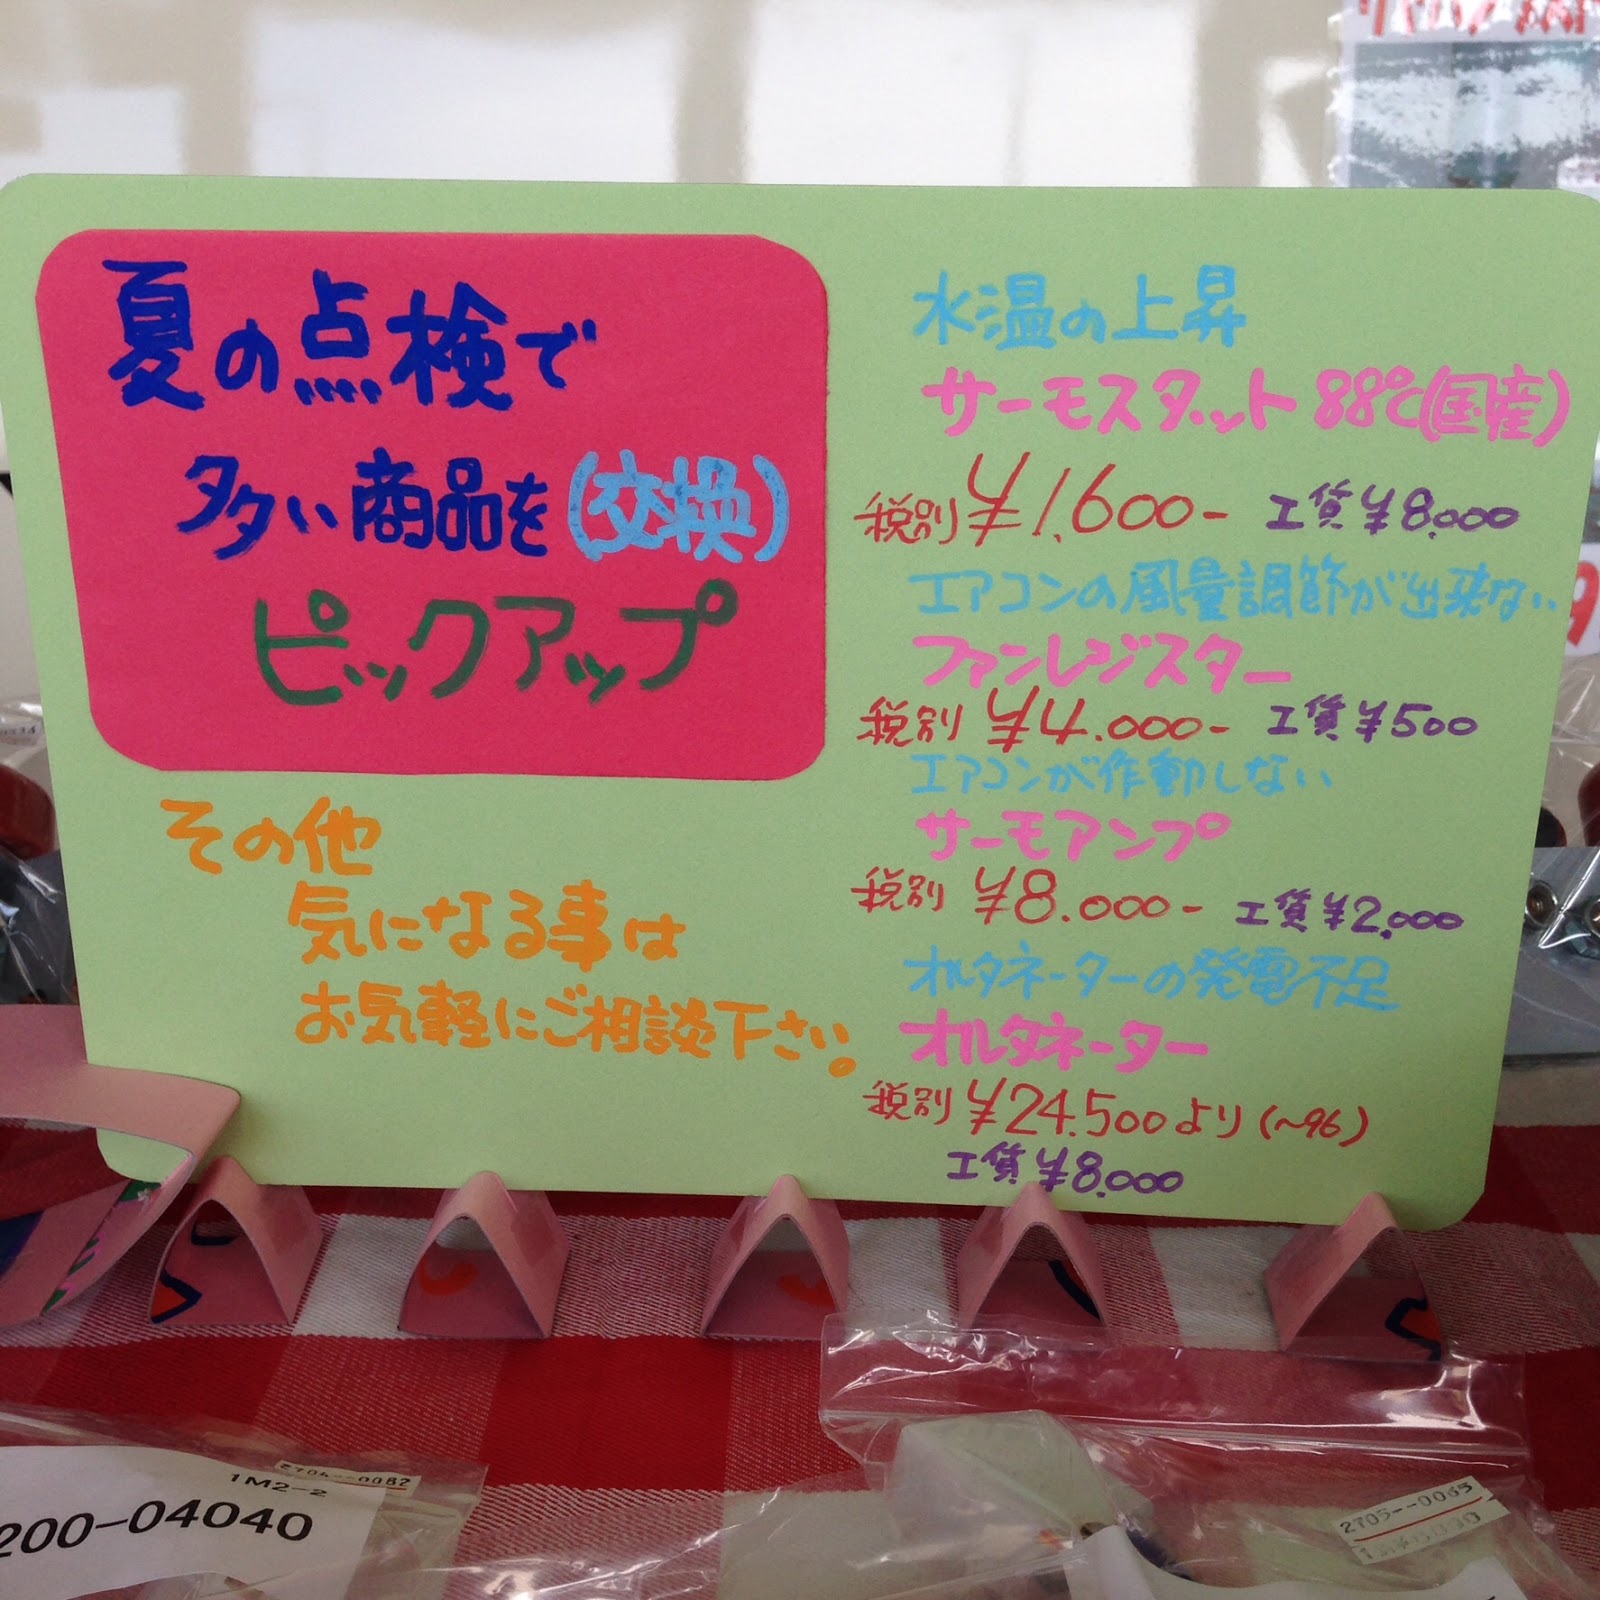 夏の点検で
多い商品を(交換)
ピックアップ
その他
気になる事は
お気軽にご相談下さい。
水温の上昇
サーモスタット88℃(国産)
税別 ¥1,600- 工賃¥8,000
エアコンの風量調節が出来ない
ファンレジスター
税別 ¥4.000- 工賃¥500
エアコンが作動しない
サーモアンプ
税別 ¥8.000- 工賃¥2,000
オルタネーターの発電不足
オルタネーター
税別 ¥24.500より(~96)
工賃¥8,000
1M2-2
200-04040
2705--0065